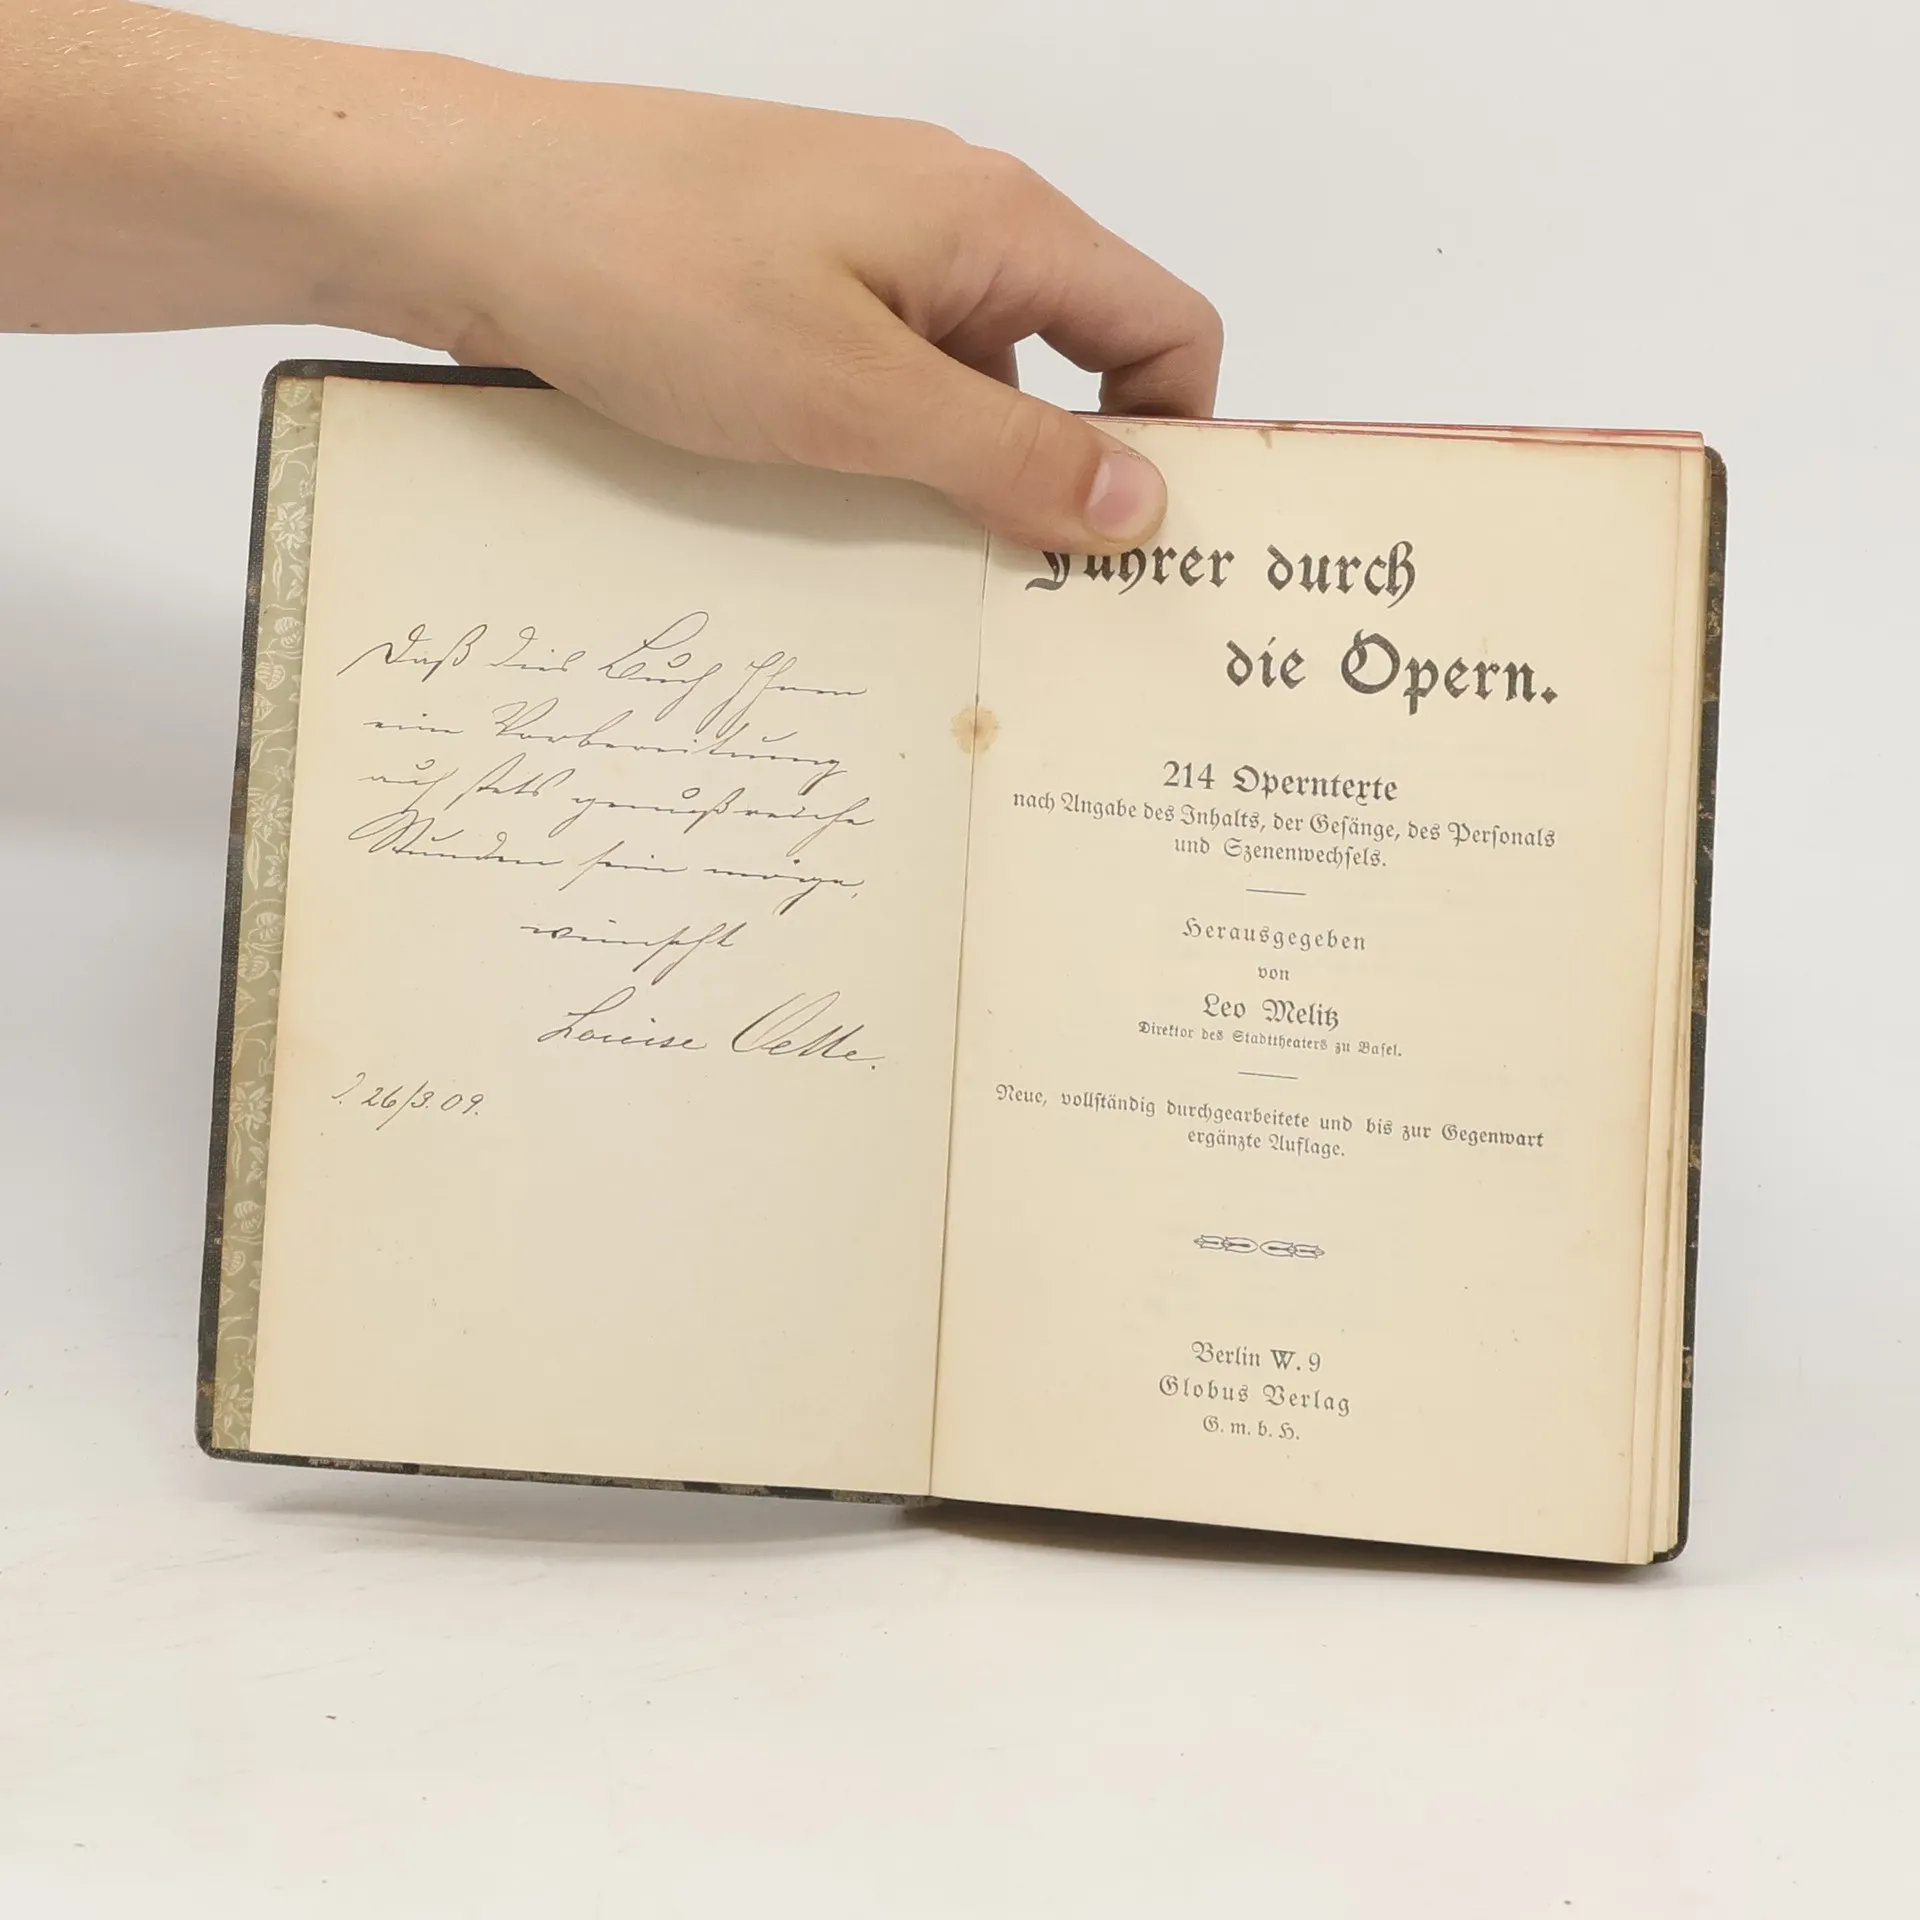 Daß dies Buch Ihnen
eine Vorbereitung
auf stets genußreiche
Stunden sein möge,
wünscht
Louise Oelle.
26/3. 09.
Führer durch
die Opern.
214 Operntexte
nach Angabe des Inhalts, der Gesänge, des Personals
und Szenenwechsels.
Herausgegeben
von
Leo Melitz
Direktor des Stadttheaters zu Basel.
Neue, vollständig durchgearbeitete und bis zur Gegenwart
ergänzte Auflage.
Berlin W. 9
Globus Verlag
G. m. b. H.